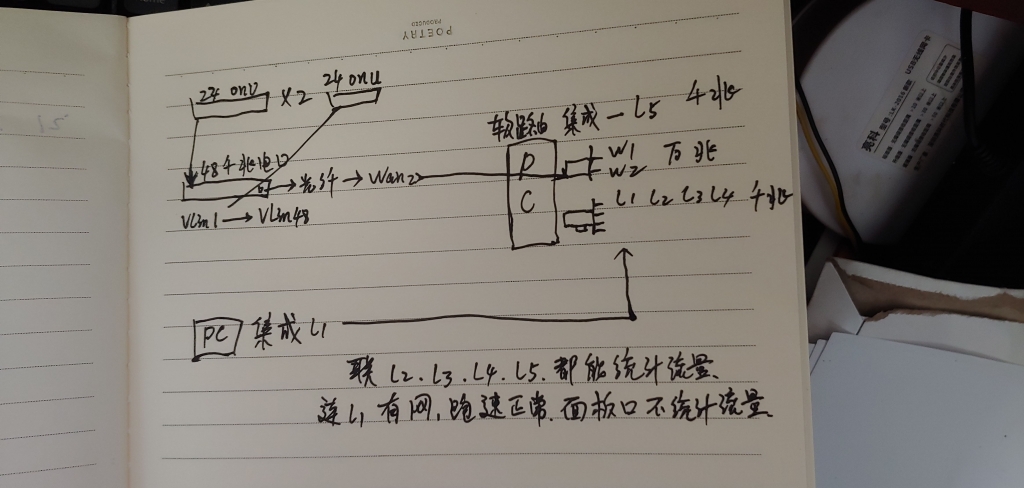 POETRY
PRODUCED
24 onU ×2
24 onU
软路由 集成一L5 千兆
48千兆电口
→光纤→Wan2
P
C
W1 万兆
W2
L1 L2 L3 L4 千兆
Vlan1→Vlan48
PC 集成L1
联L2.L3.L4.L5.都能统计流量.
连L1有网,跑速正常.面板口不统计流量.